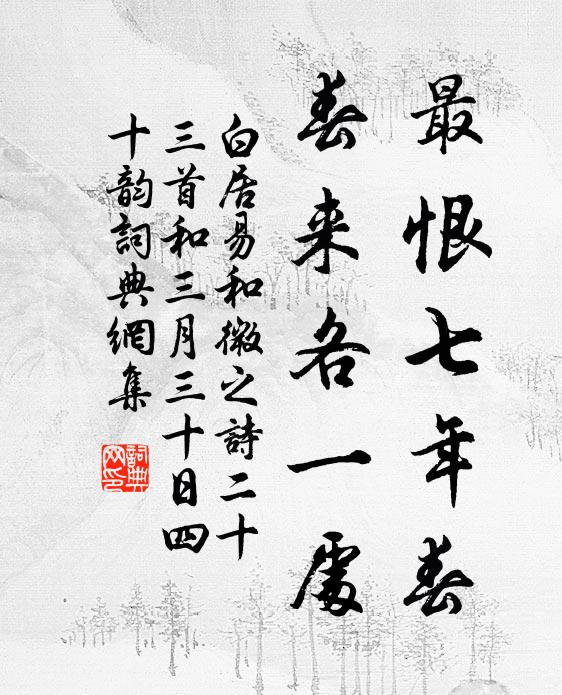 最恨七年春
春来各一處
白居易和微之詩二十
三首和三月三十日四
十韵詞典網集
詞典
网印